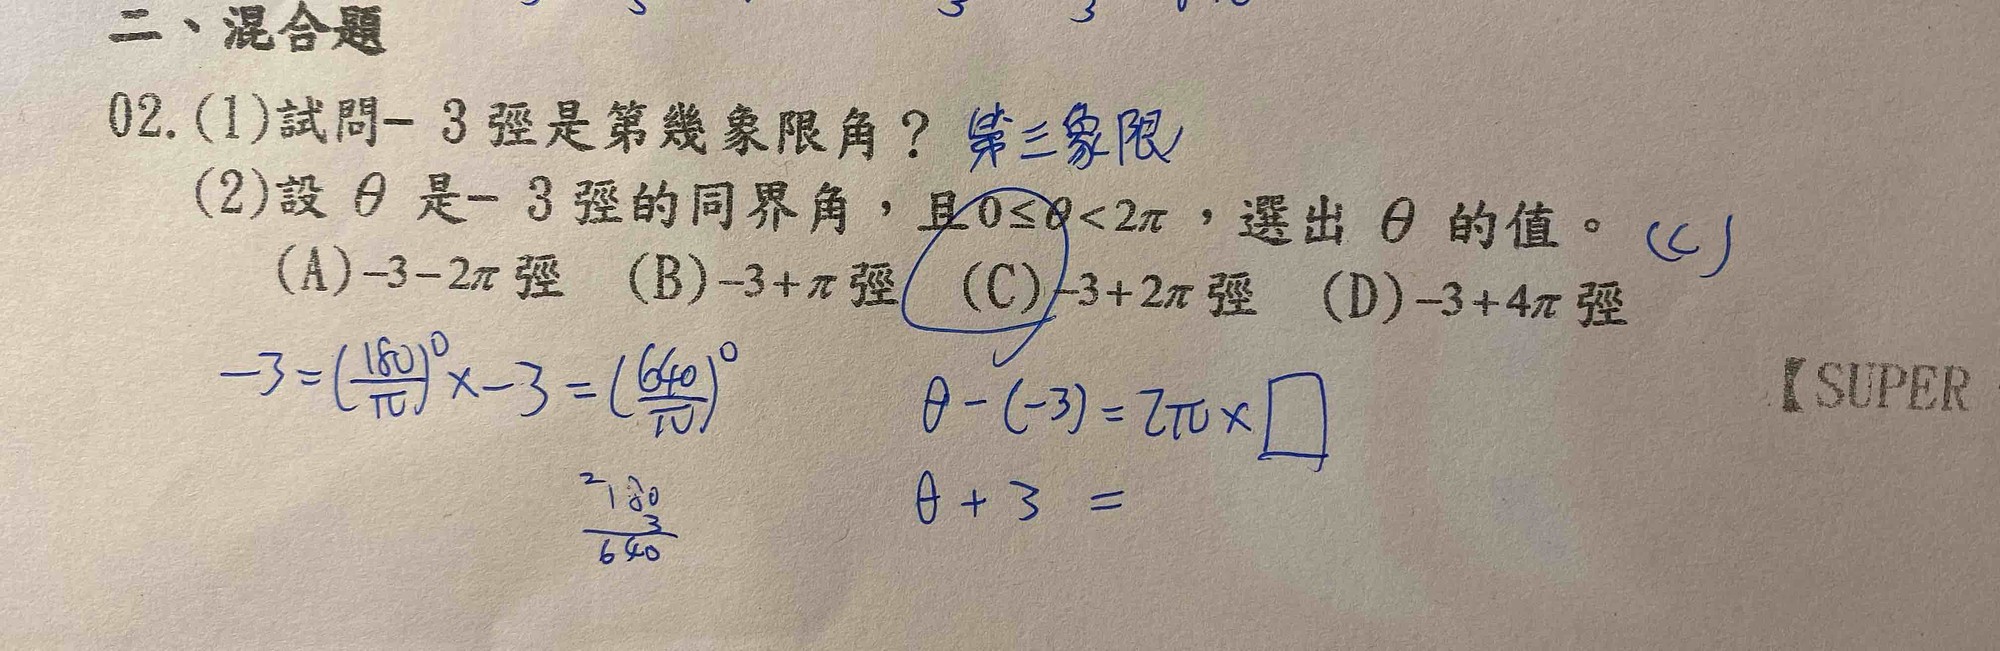 二、混合題
02.(1)試問- 3 弳是第幾象限角？ 第三象限
(2)設 θ 是- 3 弳的同界角，且 0≤θ<2π ，選出 θ 的值。 (C)
(A)-3-2π 弳 (B)-3+π 弳 (C)-3+2π 弳 (D)-3+4π 弳
-3=(180/π)⁰×-3=(640/π)⁰
θ-(-3)=2π×□
【SUPER
2180
3
640
θ+3 =